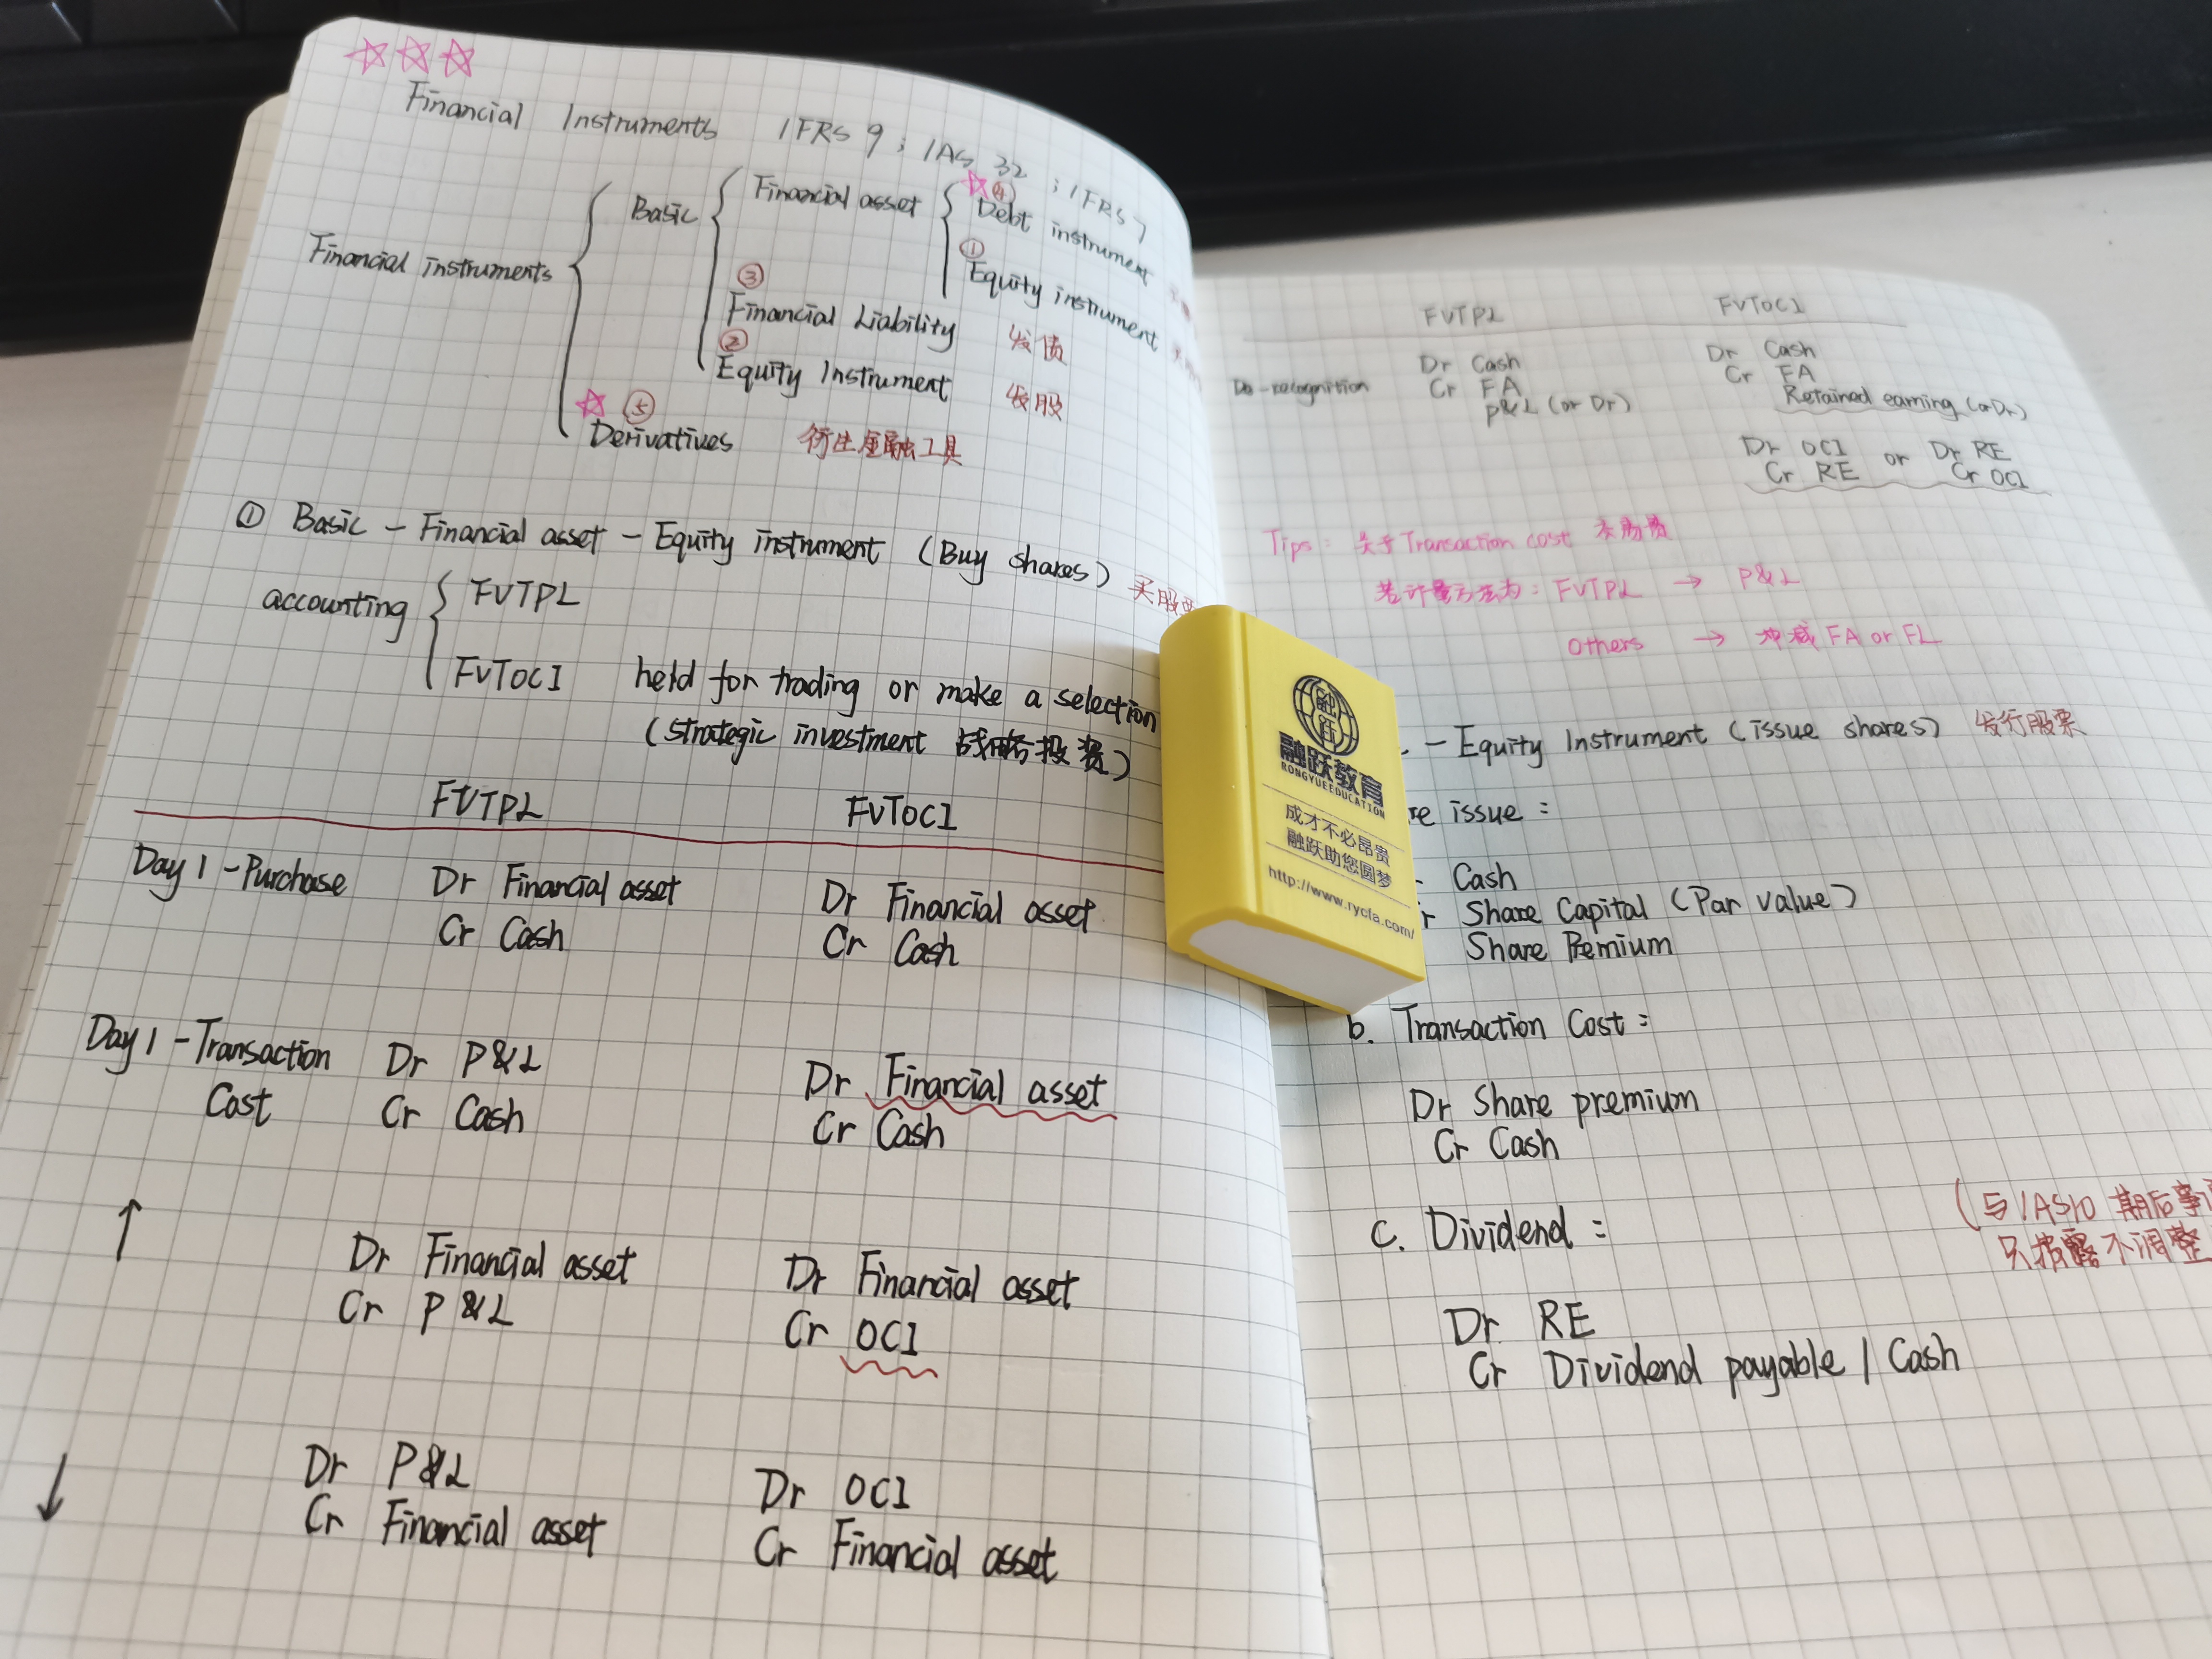 Financial Instruments IFRS 9 ; IAS 32 ; IFRS 7
Financial instruments
Basic
Financial asset
④
Debt instrument
①
Equity instrument
③
Financial Liability 发债
②
Equity Instrument 发股
⑤
Derivatives 衍生金融工具
① Basic - Financial asset - Equity instrument (Buy shares) 买股
accounting
FVTPL
FVTOCI held for trading or make a selection
(strategic investment 战略投资)
FVTPL FVTOCI
Day 1 - Purchase Dr Financial asset Dr Financial asset
Cr Cash Cr Cash
Day 1 - Transaction Dr P&L Dr Financial asset
Cost Cr Cash Cr Cash
↑ Dr Financial asset Dr Financial asset
Cr P&L Cr OCI
↓ Dr P&L Dr OCI
Cr Financial asset Cr Financial asset
FVTPL FVTOCI
De-recognition Dr Cash Dr Cash
Cr FA Cr FA
P&L (or Dr) Retained earning (or Dr)
Dr OCI or Dr RE
Cr RE Cr OCI
Tips: 关于Transaction cost 交易费
若计量方法为: FVTPL → P&L
others → 冲减 FA or FL
- Equity Instrument (issue shares) 发行股票
re issue :
Cash
r Share Capital (Par value)
Share Premium
b. Transaction Cost :
Dr Share premium
Cr Cash
c. Dividend :
(与IAS10 期后事
只披露不调整
Dr RE
Cr Dividend payable / Cash
融跃
融跃教育
RONGYUEEDUCATION
成才不必昂贵
融跃助您圆梦
http://www.rycfa.com/